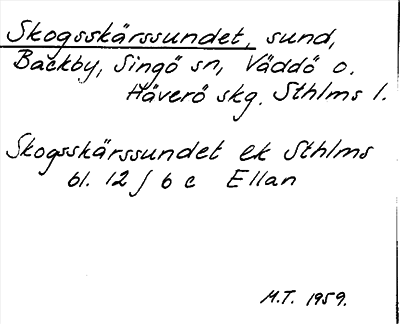 Skogsskärssundet, sund,
Backby, Singö sn, Väddö o.
Häverö skg. Sthlms l.
Skogsskärssundet ek Sthlms
bl. 12 J 6 c Ellan
M.T. 1959.